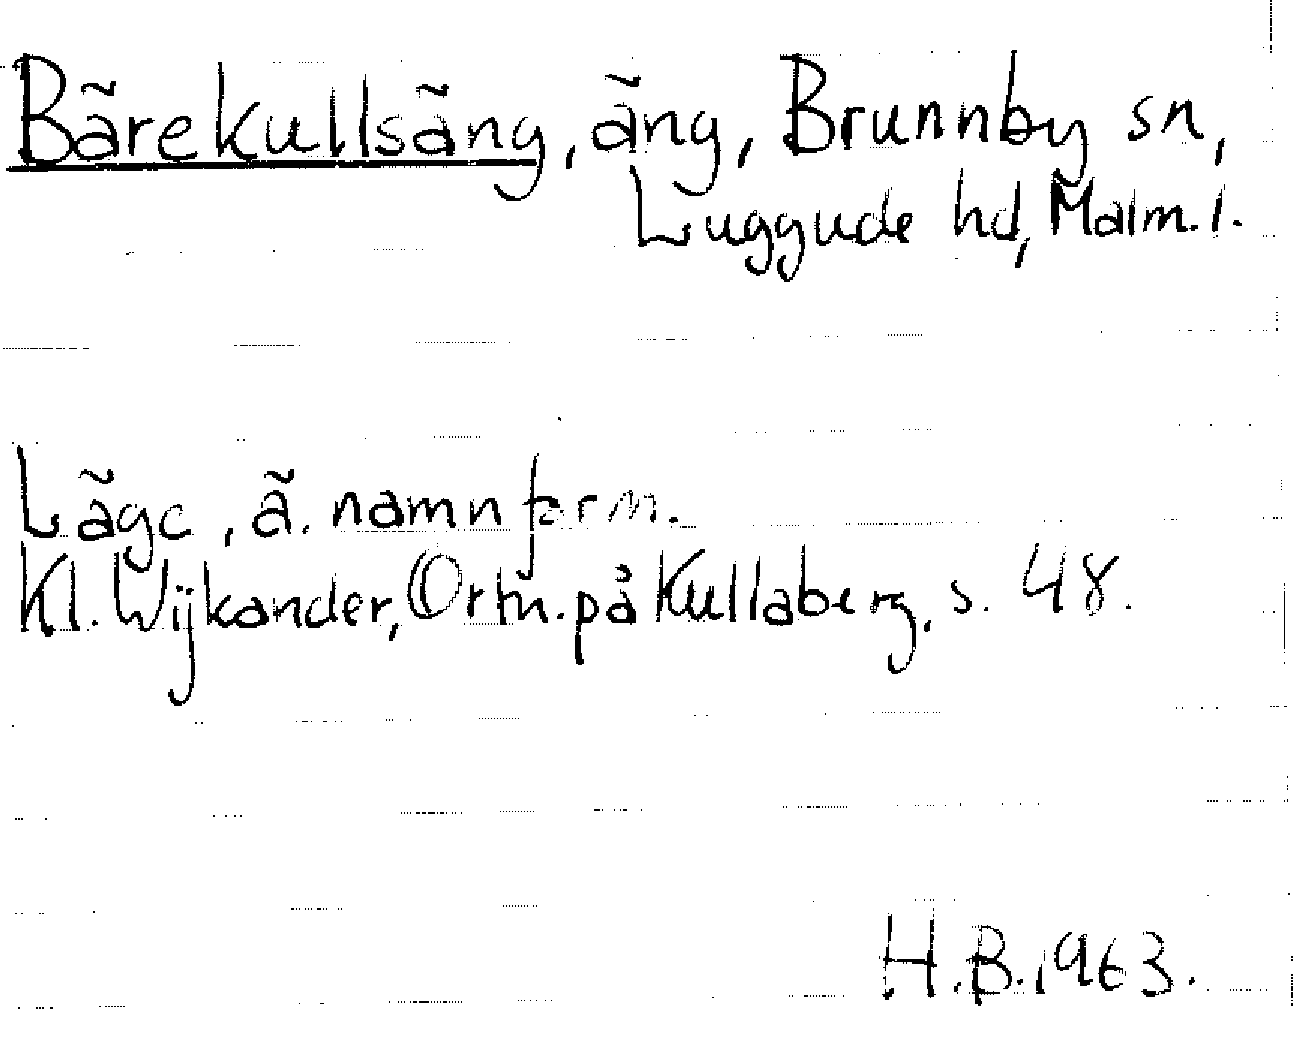 Bärekullsäng, äng, Brunnby sn,
Luggude hd, Malm. l.
Läge, ä. namnform.
Kl. Wijkander, Ortn. på Kullaberg, s. 48.
H.B. 1963.